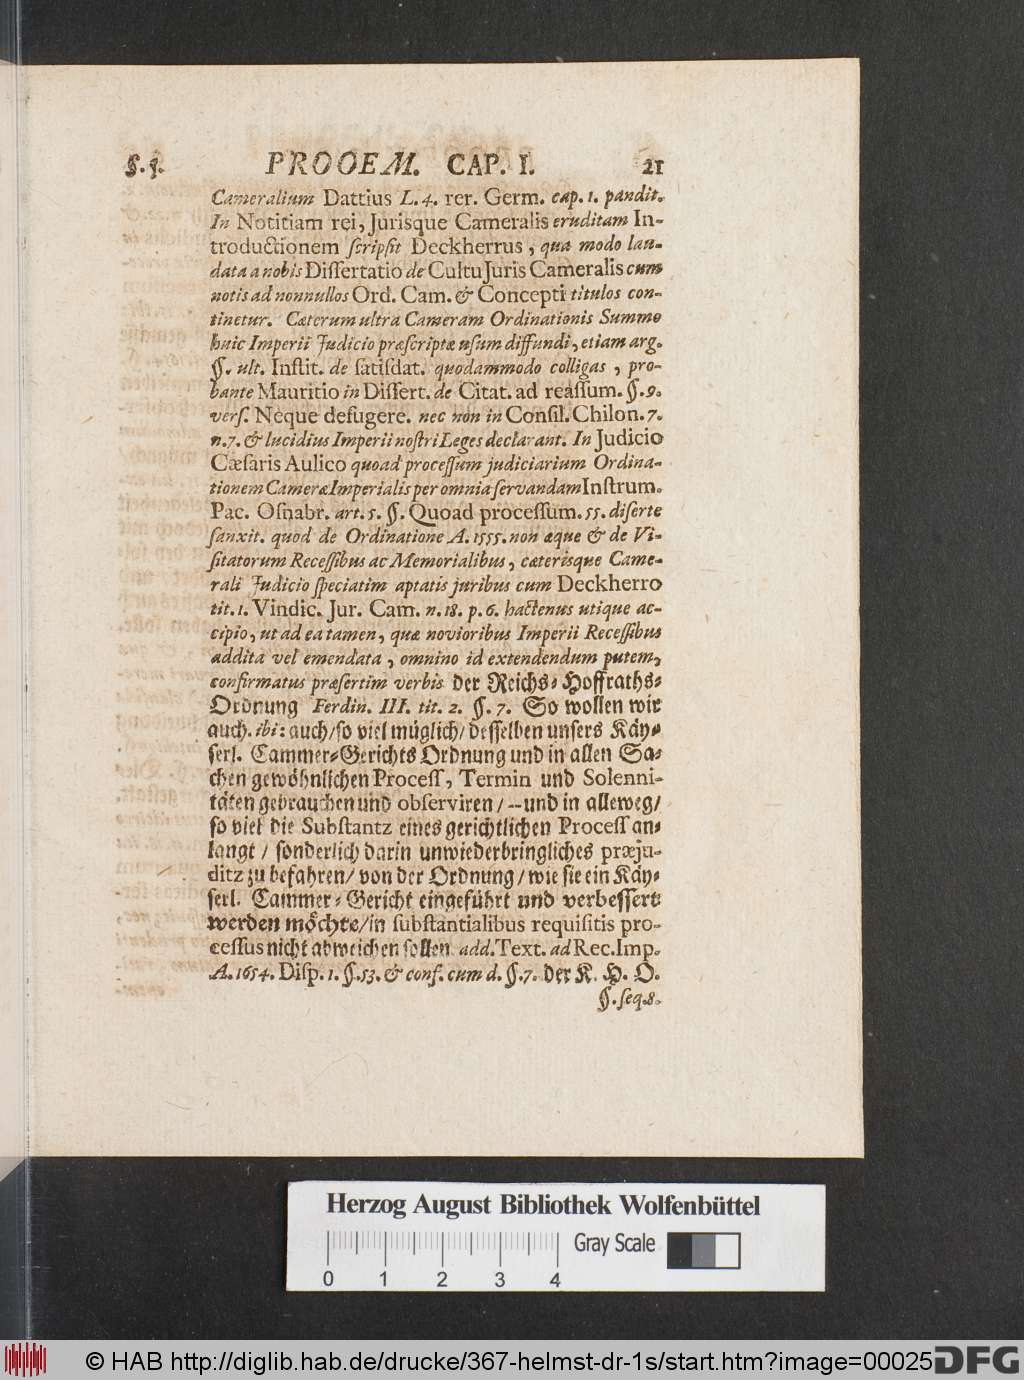 §. 5. PROOEM. CAP. I. 21
Cameralium Dattius L. 4. rer. Germ. cap. 1. pandit.
In Notitiam rei, Jurisque Cameralis eruditam In-
troductionem ſcripſit Deckherrus, qua modo lau-
data a nobis Diſſertatio de Cultu Juris Cameralis cum
notis ad nonnullos Ord. Cam. & Concepti titulos con-
tinetur. Cæterum ultra Cameram Ordinationis Summo
huic Imperii Judicio præſcriptæ uſum diffundi, etiam arg.
§. ult. Inſtit. de ſatiſdat. quodammodo colligas, pro-
bante Mauritio in Diſſert. de Citat. ad reaſſum. §. 9.
verſ. Neque defugere. nec non in Conſil. Chilon. 7.
n. 7. & lucidius Imperii noſtri Leges declarant. In Judicio
Cæſaris Aulico quoad proceſſum judiciarium Ordina-
tionem Cameræ Imperialis per omnia ſervandam Inſtrum.
Pac. Oſnabr. art. 5. §. Quoad proceſſum. 55. diſerte
ſanxit. quod de Ordinatione A. 1555. non æque & de Vi-
ſitatorum Receſſibus ac Memorialibus, cæterisque Came-
rali Judicio ſpeciatim aptatis juribus cum Deckherro
tit. 1. Vindic. Jur. Cam. n. 18. p. 6. hactenus utique ac-
cipio, ut ad ea tamen, quæ novioribus Imperii Receſſibus
addita vel emendata, omnino id extendendum putem,
confirmatus præſertim verbis der Reichs-Hoffraths-
Ordnung Ferdin. III. tit. 2. §. 7. So wollen wir
auch. ibi: auch/ ſo viel müglich/ deſſelben unſers Käy-
ſerl. Cammer-Gerichts Ordnung und in allen Sa-
chen gewöhnlichen Proceſſ, Termin und Solenni-
täten gebrauchen und obſerviren/ -- und in alleweg/
ſo viel die Subſtantz eines gerichtlichen Proceſſ an-
langt/ ſonderlich darin unwiederbringliches præju-
ditz zu befahren/ von der Ordnung/ wie ſie ein Käy-
ſerl. Cammer-Gericht eingeführt und verbeſſert
werden möchte/ in ſubſtantialibus requiſitis pro-
ceſſus nicht abweichen ſollen. add. Text. ad Rec. Imp.
A. 1654. Diſp. 1. §. 53. & conf. cum d. §. 7. der K. H. O.
§. ſeq. 8.
Herzog August Bibliothek Wolfenbüttel
Gray Scale
0 1 2 3 4
© HAB http://diglib.hab.de/drucke/367-helmst-dr-1s/start.htm?image=00025
DFG